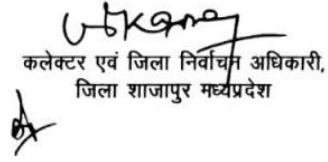 कलेक्टर एवं जिला निर्वाचन अधिकारी,
जिला शाजापुर मध्यप्रदेश